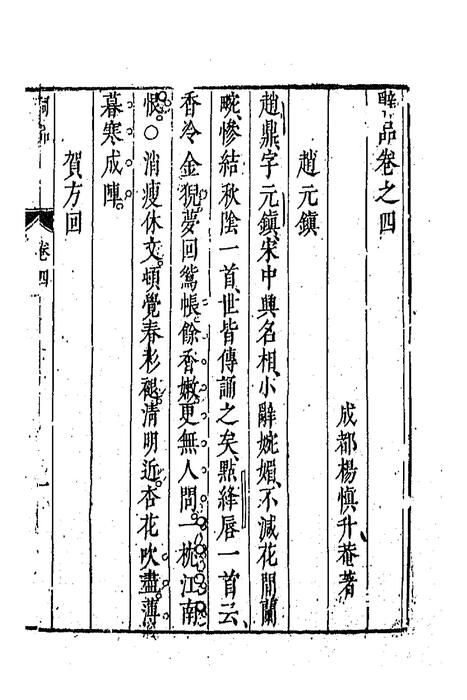 辭品卷之四
成都楊慎升菴著
趙元鎮
趙鼎字元鎮、宋中興名相、小辭婉媚、不減花間蘭
畹、慘結秋陰一首、世皆傳誦之矣、點絳唇一首云、
香冷金猊、夢回鴛帳餘香嫩、更無人問。一枕江南
恨。○消瘦休文、頓覺春衫褪、清明近。杏花吹盡、薄
暮寒成陣。
賀方回
詞品 卷四 一